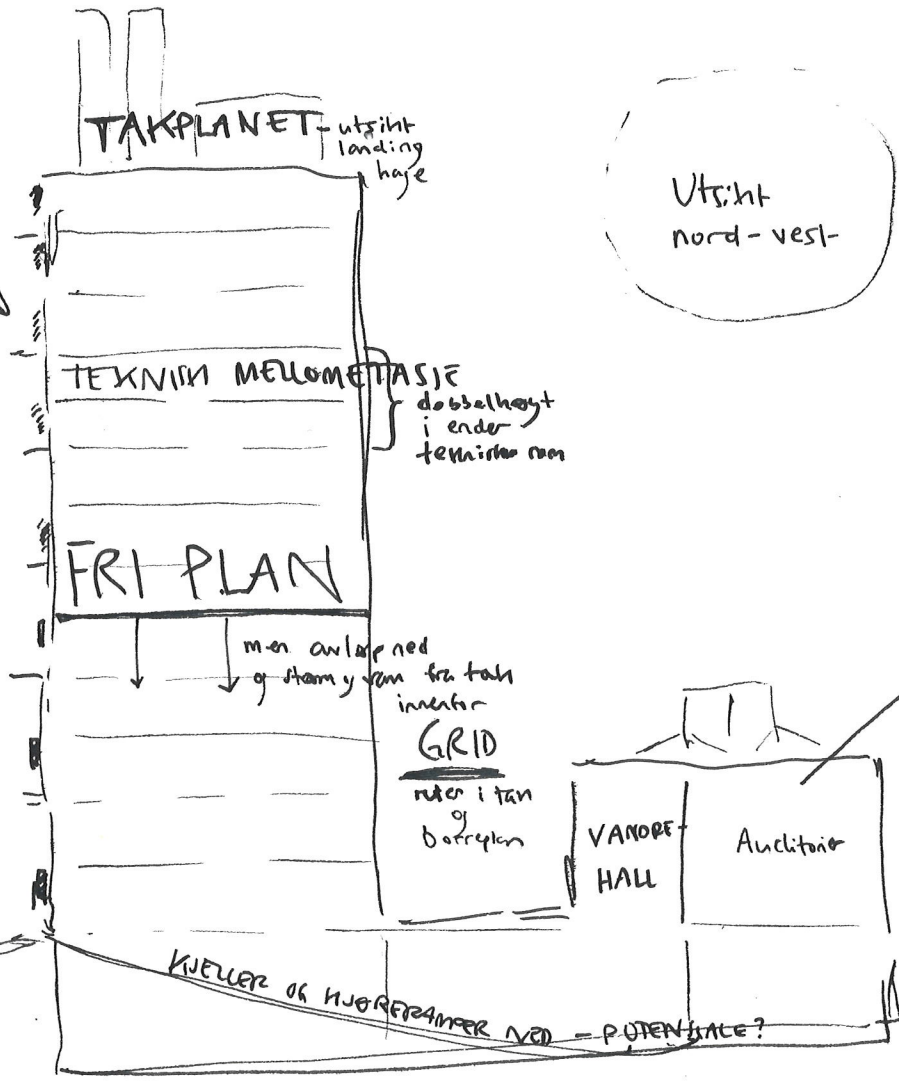 TAKPLANET - utsikt
landing
hage
Utsikt
nord-vest
TEKNISK MELLOMETASJE
dobbelhøyt
i ender
tekniske rom
FRI PLAN
men avløp ned
og strøm y fra tak
innenfor
GRID
ruter i tak
og
VANDRE-
HALL
Auditorier
KJELLER OG KJØRERAMPER NED - POTENSIALE?